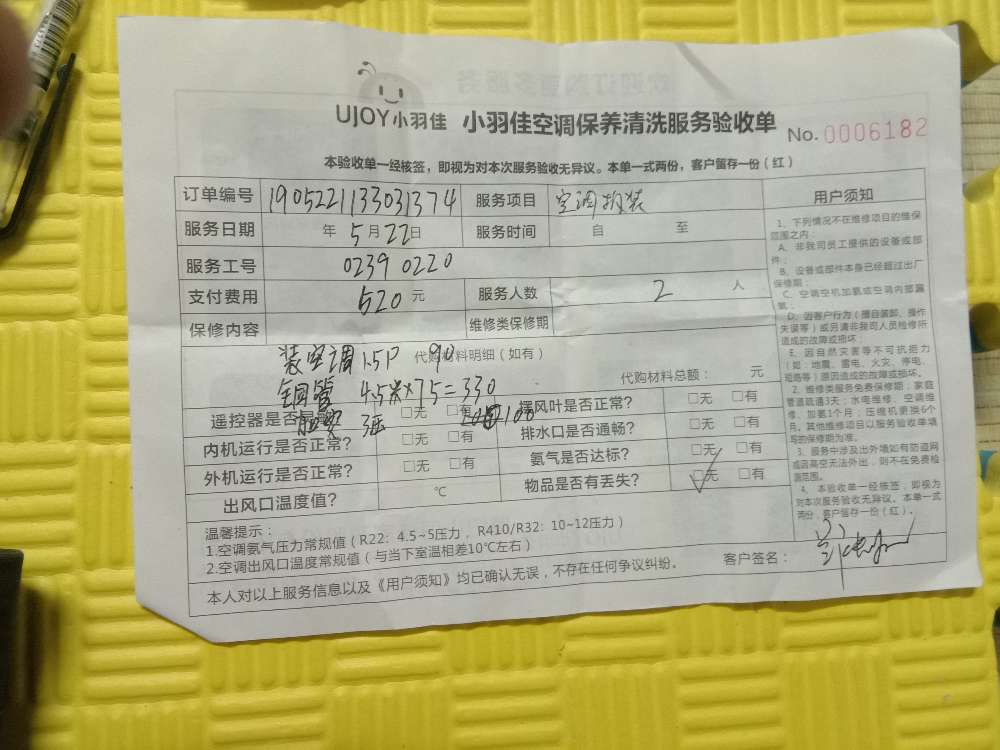 UJOY小羽佳 小羽佳空调保养清洗服务验收单 No. 0006182
本验收单一经核签，即视为对本次服务验收无异议。本单一式两份，客户留存一份（红）
订单编号 1905221133031374 服务项目 空调拆装
服务日期 年 5月22日 服务时间 自 至
服务工号 0239 0220
支付费用 520元 服务人数 2 人
保修内容 维修类保修期
代购材料明细（如有）
装空调1.5P 90
铜管 4.5米×75=330
代购材料总额： 元
遥控器是否 □无 □有 摆风叶是否正常？ □无 □有
加 100
内机运行是否正常？ □无 □有 排水口是否通畅？ □无 □有
外机运行是否正常？ □无 □有 氨气是否达标？ □无 □有
出风口温度值？ ℃ 物品是否有丢失？ □无 □有
温馨提示：
1.空调氨气压力常规值（R22：4.5~5压力，R410/R32：10~12压力）
2.空调出风口温度常规值（与当下室温相差10℃左右）
客户签名：
本人对以上服务信息以及《用户须知》均已确认无误，不存在任何争议纠纷。
用户须知
1、下列情况不在维修项目的维保
范围之内：
A、非我司员工提供的设备或部
件；
B、设备或部件本身已经超过出厂
保修期；
C、空调空机加氨或空调内部漏
氨；
D、因客户行为（擅自装卸、操作
失误等）或另请非我司人员检修所
造成的故障或损坏；
E、因自然灾害等不可抗拒力
（如：地震、雷电、火灾、停电、
短路等）原因造成的故障或损坏。
2、维修类服务免费保修期：家庭
管道疏通3天；水电维修、空调维
修、加氨1个月；压缩机更换6个
月。其他维修项目以服务验收单填
写的保修期为准。
3、服务中涉及出外墙如有防盗网
或因高空无法外出，则不在免费检
测范围。
4、本验收单一经核签，即视为
对本次服务验收无异议。本单一式
两份，客户留存一份（红）。